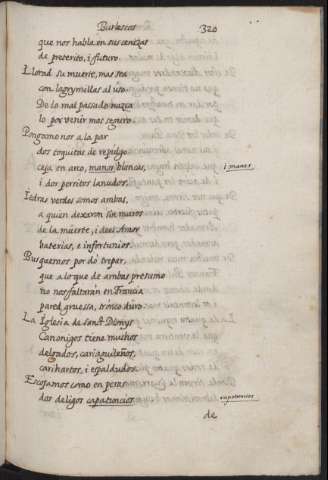 Burlescos 320
que nos habla en sus cenizas
de preterito, i futuro.
Llorad su muerte, mas sea
con lagrymillas al uso.
De lo mal passado nazca
lo por venir mas seguro.
Pongamonos a la par
dos toquitas de repulgo
ceja en arco, manos blancas, i manos,
i dos perritos lanudos.
Iedras verdes somos ambas,
a quien dexaron sin muros
de la muerte, i de el Amor
baterias, e infortunios.
Busquemos por dó trepar,
que a lo que de ambas presumo
no nos faltarán en Francia
pared gruessa, tronco duro.
La Iglesia de Sanct Dionys
Canonigos tiene muchos
delgados, cariaguileños,
carihartos, i espaldudos.
Escojamos como en peras
dos deligos capotuncios. capotuncios
de